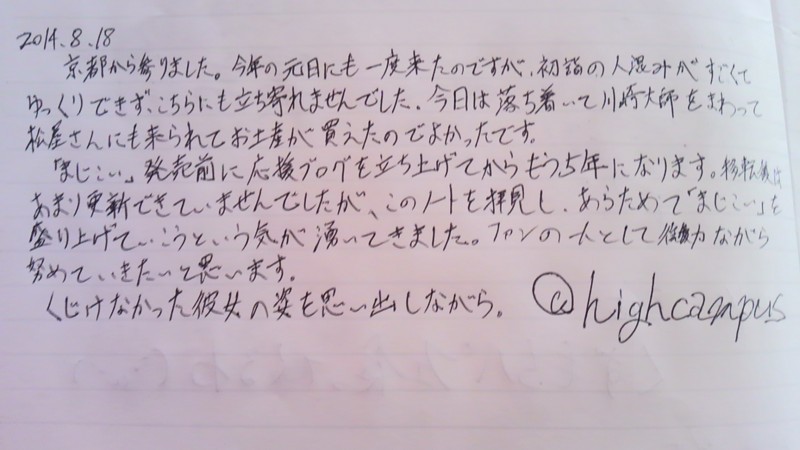 2014.8.18
京都から参りました。今年の元日にも一度来たのですが、初詣の人混みがすごくて
ゆっくりできず、こちらにも立ち寄れませんでした。今日は落ち着いて川崎大師をまわって
松屋さんにも来られてお土産が買えたのでよかったです。
「まじこい」発売前に応援ブログを立ち上げてからもう5年になります。移転後は
あまり更新できていませんでしたが、このノートを拝見し、あらためて「まじこい」を
盛り上げていこうという気が湧いてきました。ファンの一人として微力ながら
努めていきたいと思います。
くじけなかった彼女の姿を思い出しながら。 @highcampus